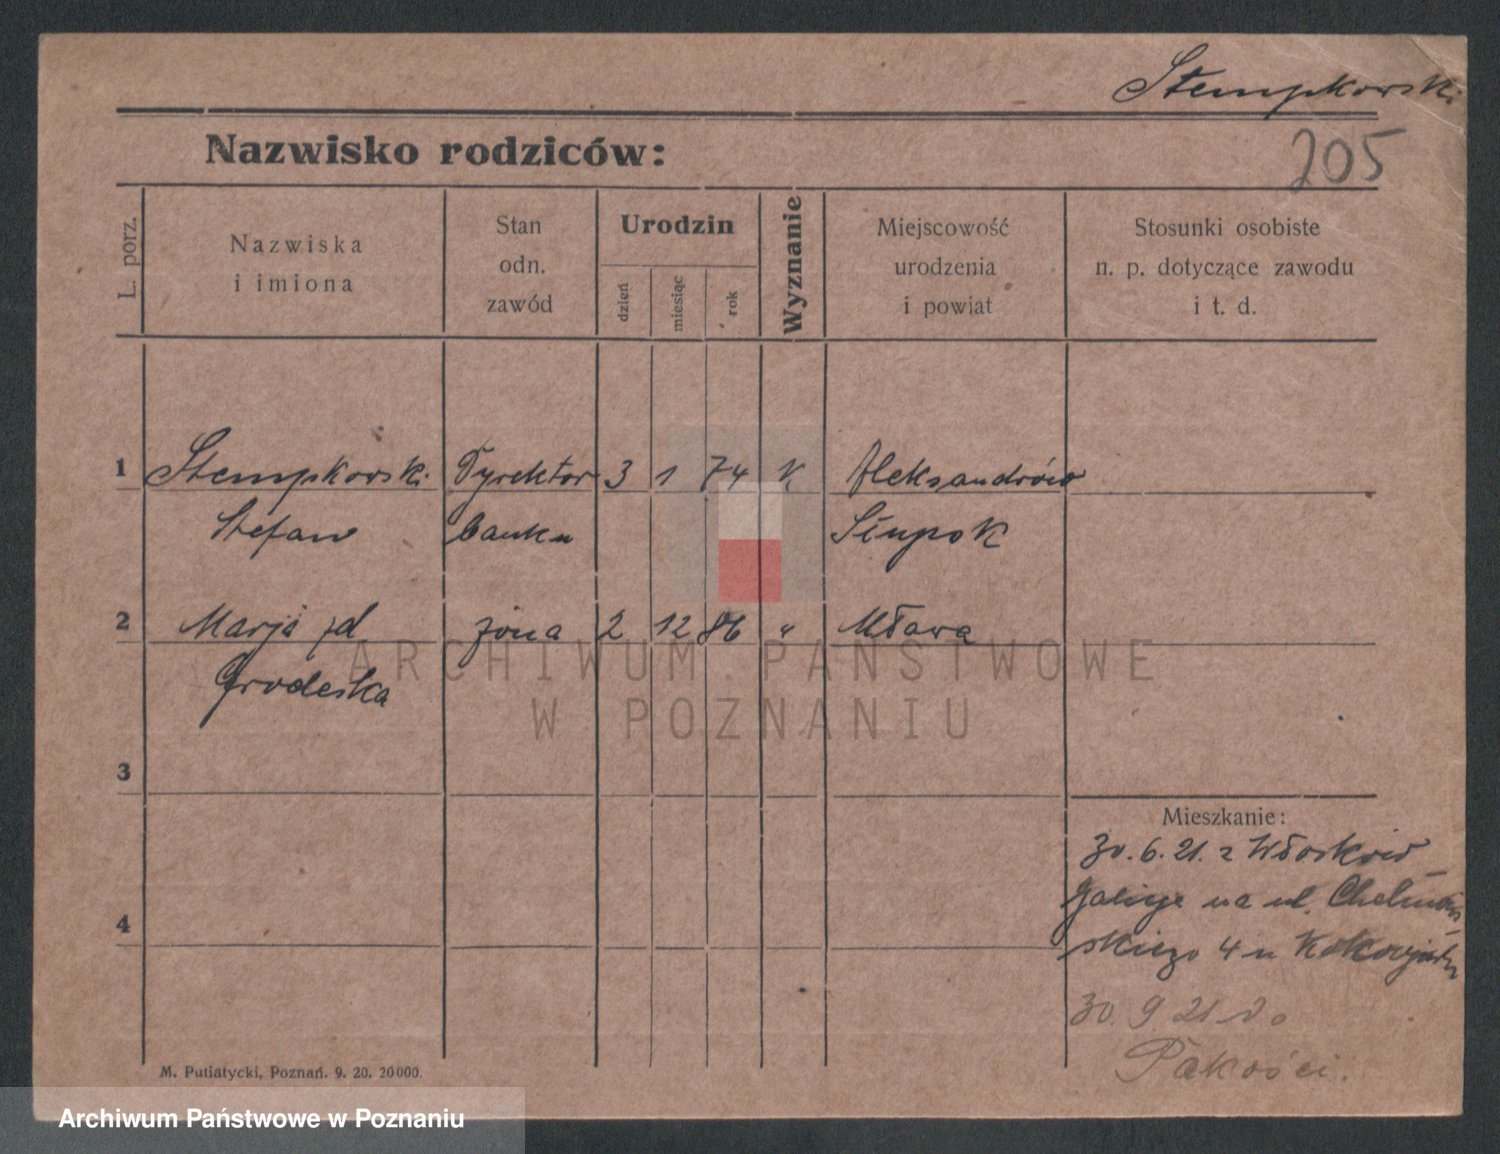 Stempkowski
205
Nazwisko rodziców:
L. porz.
Nazwiska
i imiona
Stan
odn.
zawód
Urodzin
dzień
miesiąc
rok
Wyznanie
Miejscowość
urodzenia
i powiat
Stosunki osobiste
n. p. dotyczące zawodu
i t. d.
1 Stempkowski Dyrektor 3 1 74 K Aleksandrów
Stefan banku Słupsk
2 Marja żona 2 12 86 " Mława
Grodeska
3
Mieszkanie:
30. 6. 21. z
na ul. Chełmoń
skiego 4 u
4
30. 9 21 do
Pakości.
M. Putiatycki, Poznań. 9. 20. 20000.
ARCHIWUM PAŃSTWOWE
W POZNANIU
Archiwum Państwowe w Poznaniu